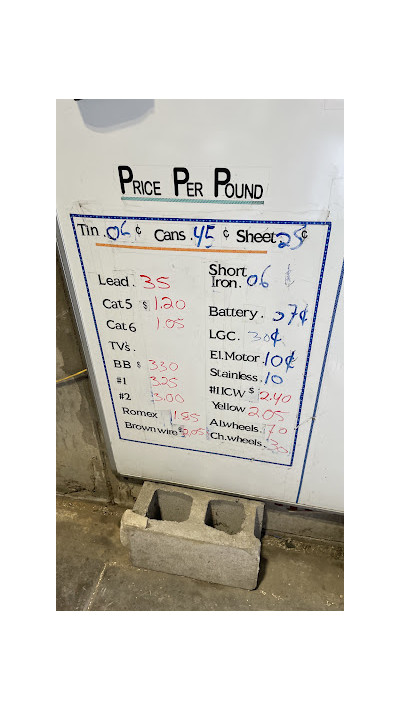 PRICE PER POUND
Tin .06 ¢ Cans .45 ¢ Sheet 25 ¢
Lead . 35
Cat 5 $ 1.20
Cat 6 1.05
TV's .
BB $ 3.30
#1 3.25
#2 3.00
Romex 1.85
Brown wire $ 2.05
Short
Iron. 06 ¢
Battery. 27¢
LGC. 30¢
El.Motor .10¢
Stainless .10
#1 ICW $ 2.40
Yellow 2.05
Al.wheels .70
Ch.wheels .